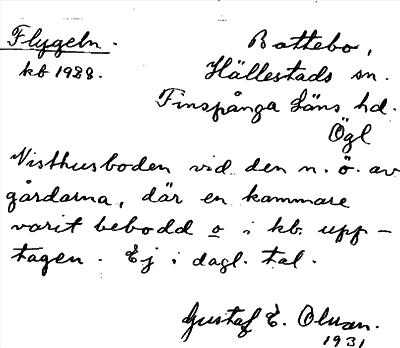 Flygeln.
kb 1928.
Battebo,
Hällestads sn.
Finspånga Läns hd.
Ögl
Visthusboden vid den n. ö. av
gårdarna, där en kammare
varit bebodd o i kb. upp-
tagen. Ej i dagl. tal.
Gustaf E. Olsson.
1931